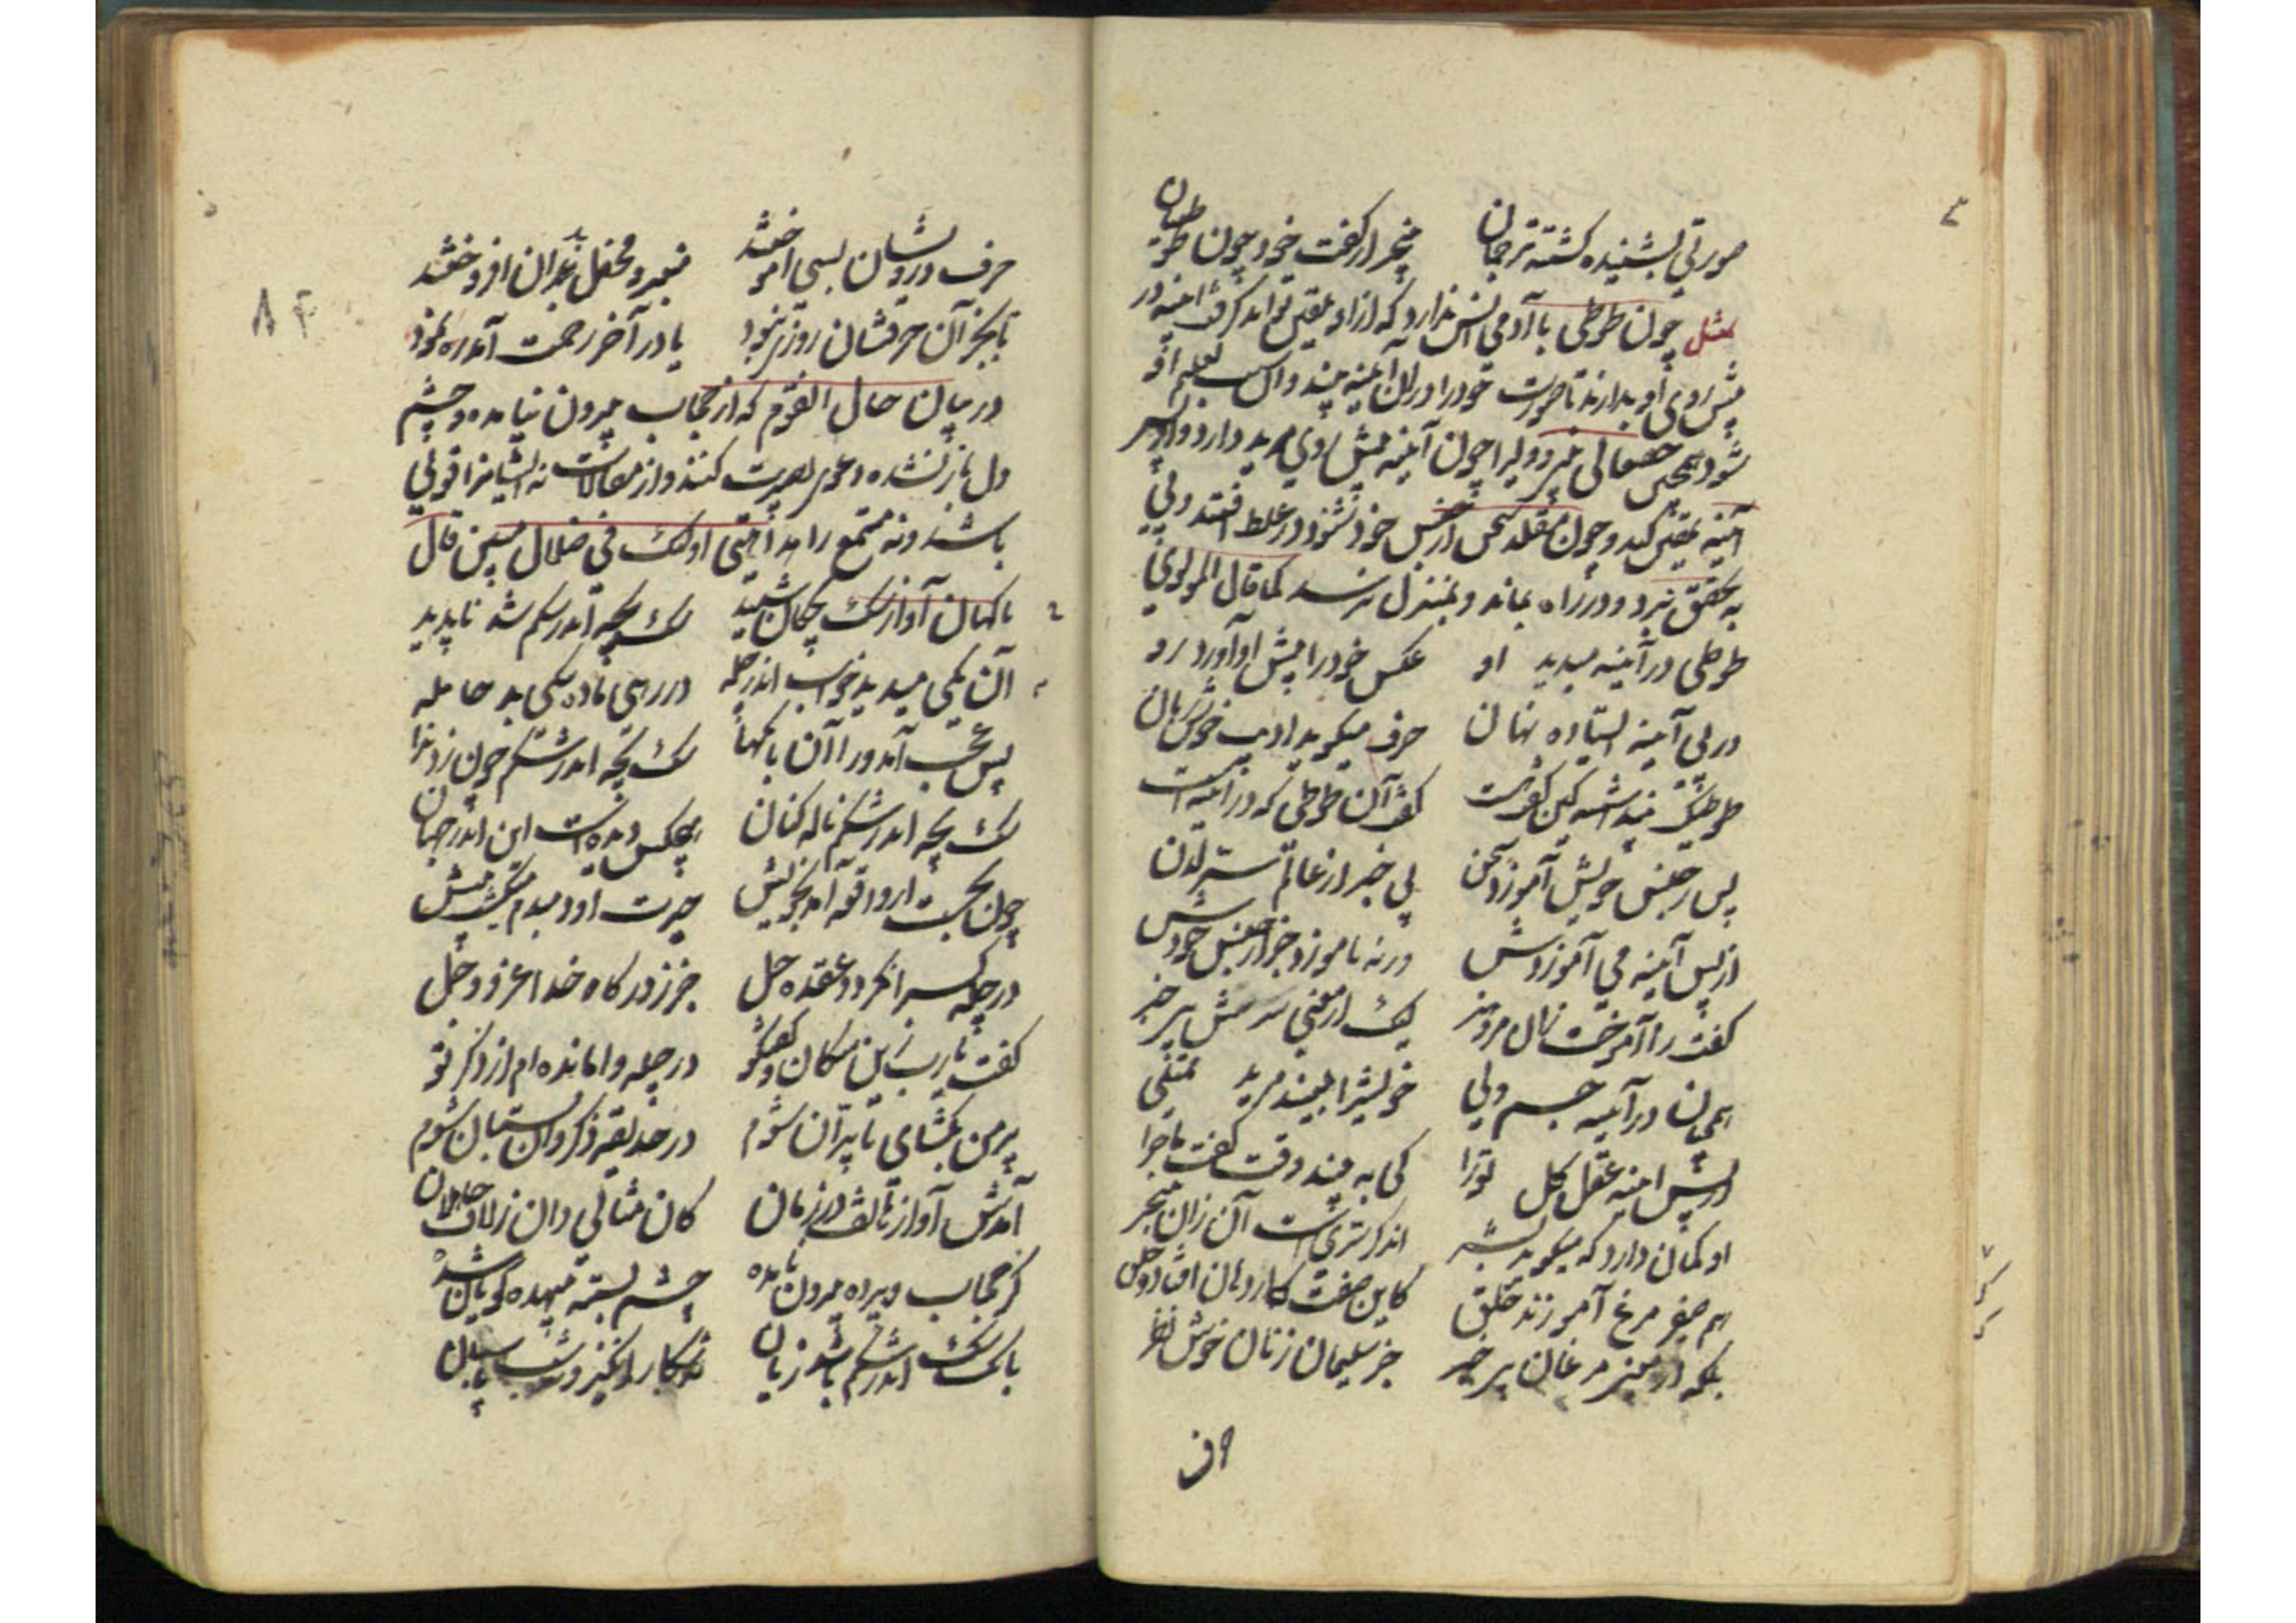 صورتی بشنیده گشته ترجمان بیخبر از گفت خود چون طوطیان
مثل چون طوطی با آدمی انس ندارد که ازاو تلقین تواند گرفت آینه در
پیش روی او بدارند تا صورت خود را در آن آینه بیند و آن سبب تعلیم او
شود همچنین حقتعالی پیر و ولی را چون آینه پیش روی مرید دارد و از پس
آینه تلقین کند و چون مقلد سخن از جنس خود شنود در غلط افتد ولی
به تحقیق نبرد و در راه بماند و بمنزل نرسد کما قال المولوی
طوطی در آینه میدید او عکس خود را پیش او آورده رو
در پی آینه استاده نهان حرف میگوید ادیب خوش زبان
طوطیک پنداشته کین گفت پست گفتن آن طوطی که در آینه است
پس ز جنس خویش آموزد سخن بی خبر از
از پس آینه می آموزدش ورنه ناموزد جز از جنس خودش
گفت را آموخت زان مرد هنر لیک از معنی سرش بی خبر
همچنان در آینه جسم ولی خویش را بیند مرید ممتلی
از پس آینه عقل کل توراا کی به بیند وقت گفت ماجرا
او گمان دارد که میگوید بشر اندگر سری است آن زان بیخبر
هم صفیر مرغ آموزند خلق کاین صفت کار دهان افتاد و حلق
لیکن از معنی مرغان بی خبر جز سلیمان زنان خوش نظر
حرف
حرف درویشان بسی آموختند منبر و محفل بدان افروختند
یا بجز آن حرفشان روزی نبود یا در آخر رحمت آمد ره نمود
در بیان حال القوم که از حجاب بیرون نیامده و چشم
دل باز نشده دعوی بصیرت کنند و از مقالات نه ایشانرا قوتی
باشد و نه مستمع را هدایتی اولئک فی ضلال مبین قال
ناگهان آواز سگ بچگان شنید سگ بچه اندر شکم شد ناپدید
آن یکی میدید خواب اندر چله در رهی ماده سگی بد حامله
پس عجب آمد ورا آن بانگها سگ بچه اندر شکم چون زد ندا
سگ بچه اندر شکم ناله کنان هیچکس دیده است این اندر جهان
چون بجست از واقعه آمد بخویش حیرت او دمبدم میگشت بیش
در چله کس را نگردد عقده حل جز ز درگاه خدا عز و جل
گفت یارب زین و گفتگو در چله وامانده ام از ذکر تو
پر من بگشای تا پران شوم در حدیقه ذکر و سیبستان شوم
آمدش آواز هاتف در زمان کان مثالی دان ز لاف جاهلان
کز حجاب و پرده بیرون نامده چشم بسته بیهده گویان شده
بانگ سگ اندر شکم باشد زیان نه شکار انگیز و نه شب پاسبان
۸۴